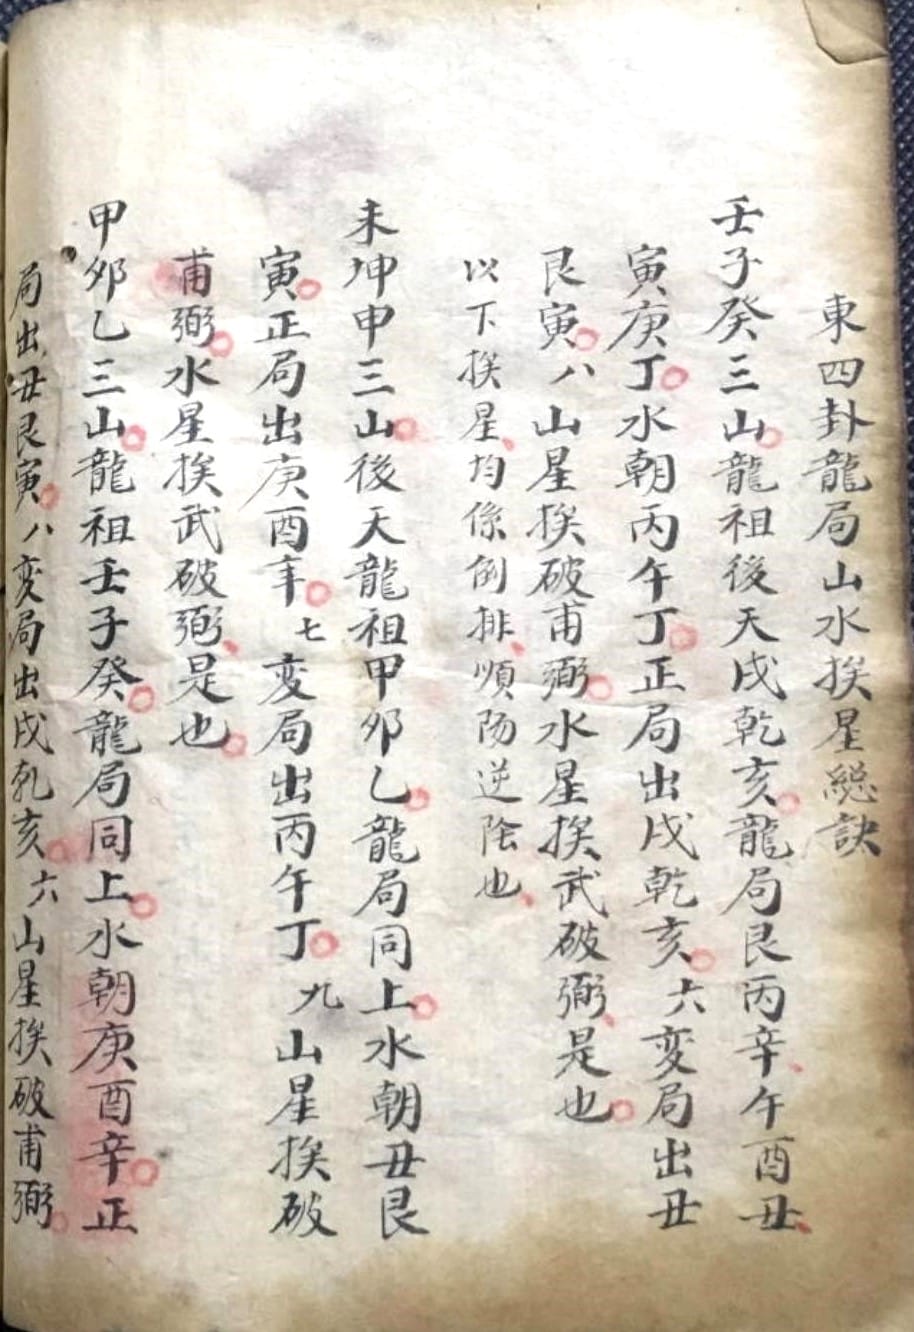 東四卦龍局山水挨星總訣
壬子癸三山龍祖後天戌乾亥龍局艮丙辛午酉丑
寅庚丁水朝丙午丁正局出戌乾亥六変局出丑
艮寅八山星挨破甫弼水星挨武破弼是也
以下挨星均係倒排順陽逆陰也
未坤申三山後天龍祖甲卯乙龍局同上水朝丑艮
寅正局出庚酉辛七変局出丙午丁九山星挨破
甫弼水星挨武破弼是也
甲卯乙三山龍祖壬子癸龍局同上水朝庚酉辛正
局出丑艮寅八変局出戌乾亥六山星挨破甫弼